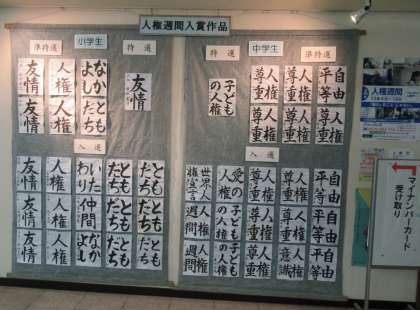 人権週間入賞作品
小学生
準特選
特選
友情
人権
なかよし
友情
友情
人権
ともだち
入選
友情
人権
いたわり
ともだち
ともだち
友情
人権
仲間
ともだち
ともだち
友情
人権
なかよし
ともだち
ともだち
中学生
特選
準特選
子どもの人権
人権尊重
人権尊重
自由平等
人権尊重
人権尊重
自由平等
入選
世界人権宣言
人権尊重
人権尊重
自由平等
人権週間
子どもの人権
人権尊重
人権尊重
自由平等
人権週間
子どもの人権
人権尊重
人権意識
自由平等
人権週間
マイナンバーカード
受け取り